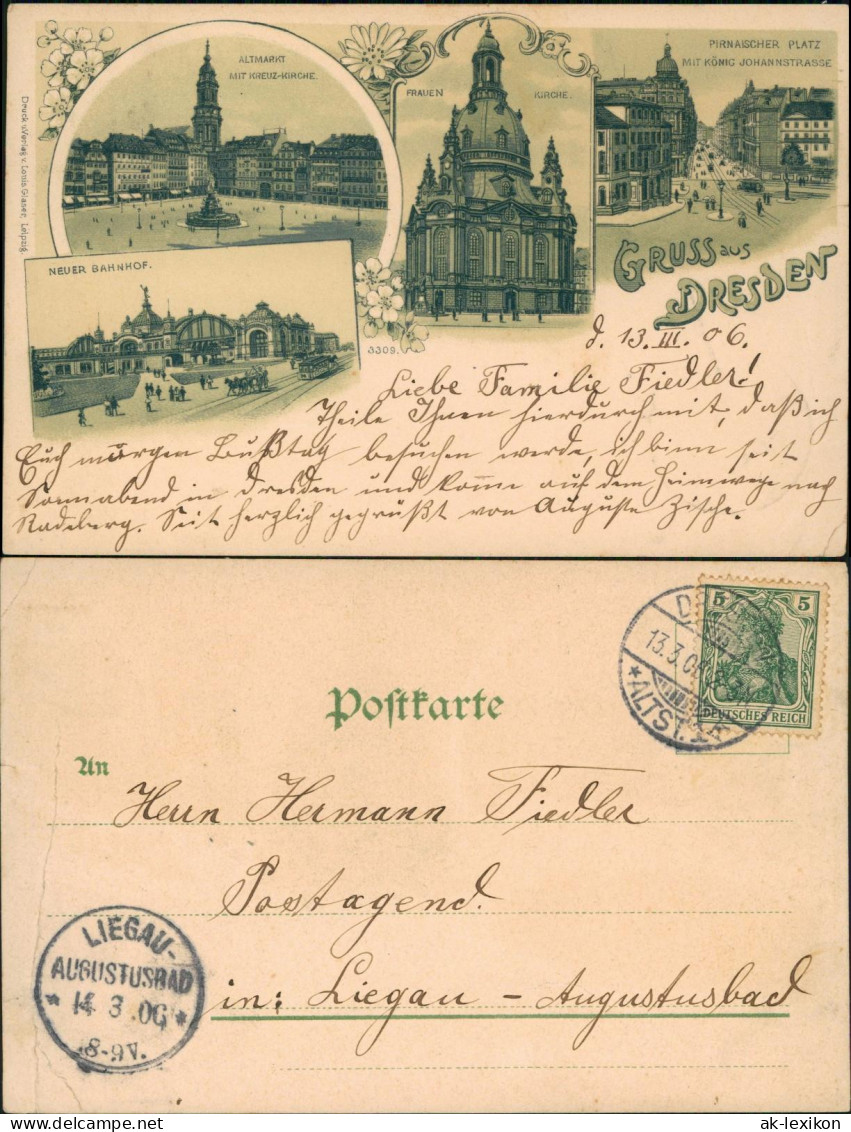 ALTMARKT
MIT KREUZ-KIRCHE.
FRAUEN KIRCHE.
PIRNAISCHER PLATZ
MIT KÖNIG JOHANNSTRASSE
Druck u Verlag v. Louis Glaser, Leipzig.
NEUER BAHNHOF.
GRUSS aus
DRESDEN
3309.
d. 13. III. 06.
Liebe Familie Fiedler!
Theile Ihnen hierdurch mit, daß ich
Euch morgen Bußtag besuchen werde, ich binn seit
Sonnabend in Dresden und komme auf dem Heimwege nach
Radeberg. Seit herzlich gegrüßt von Auguste Zische.
5 5
DEUTSCHES REICH
13.3.06
*ALTST. *
Postkarte
An
Herrn Hermann Fiedler
Postagend.
in: Liegau - Augustusbad
LIEGAU-
AUGUSTUSBAD
* 14 3 .06 *
8-9V.
ak-lexikon.com